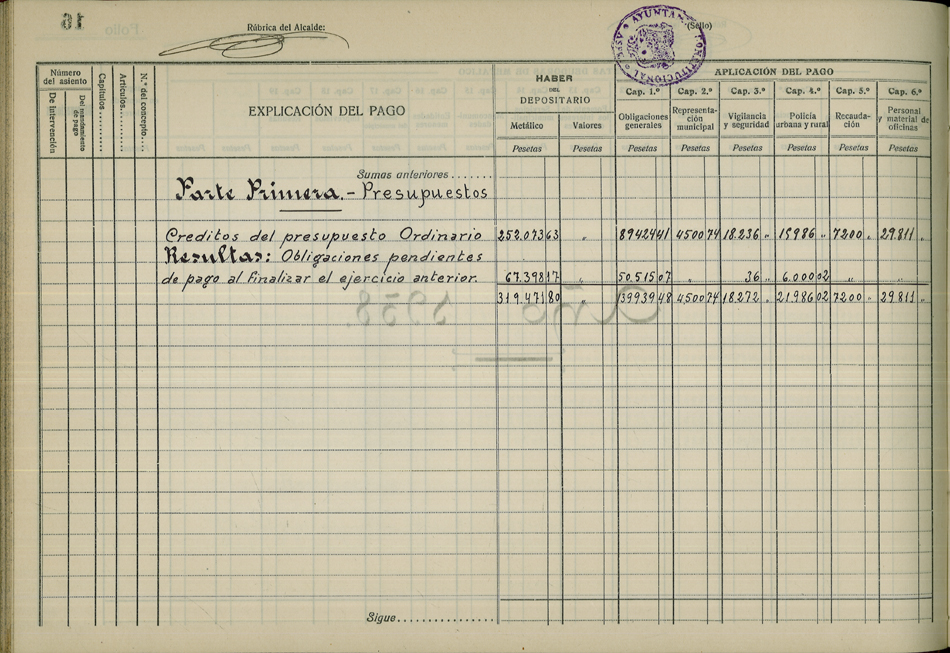 Rúbrica del Alcalde:
(Sello)
AYUNTA CONSTITUCIONAL ASPE
Número del asiento
De Intervención
Del mandamiento de pago
Capítulos
Artículos
N.º del concepto
EXPLICACIÓN DEL PAGO
HABER
DEL
DEPOSITARIO
Metálico
Valores
APLICACIÓN DEL PAGO
Cap. 1.º Cap. 2.º Cap. 3.º Cap. 4.º Cap. 5.º Cap. 6.º
Obligaciones generales
Representación municipal
Vigilancia y seguridad
Policía urbana y rural
Recaudación
Personal y material de oficinas
Pesetas Pesetas Pesetas Pesetas Pesetas Pesetas Pesetas Pesetas
Sumas anteriores.......
Parte Primera.- Presupuestos
Creditos del presupuesto Ordinario 252.073 63 " 89424 41 4500 74 18.236 " 15986 " 7200 " 29.811 "
Resultas: Obligaciones pendientes
de pago al finalizar el ejercicio anterior. 67.398 17 " 50.515 07 " 36 " 6.000 02 " "
319.471 80 " 139939 48 4500 74 18.272 " 21.986 02 7200 " 29.811 "
Sigue................